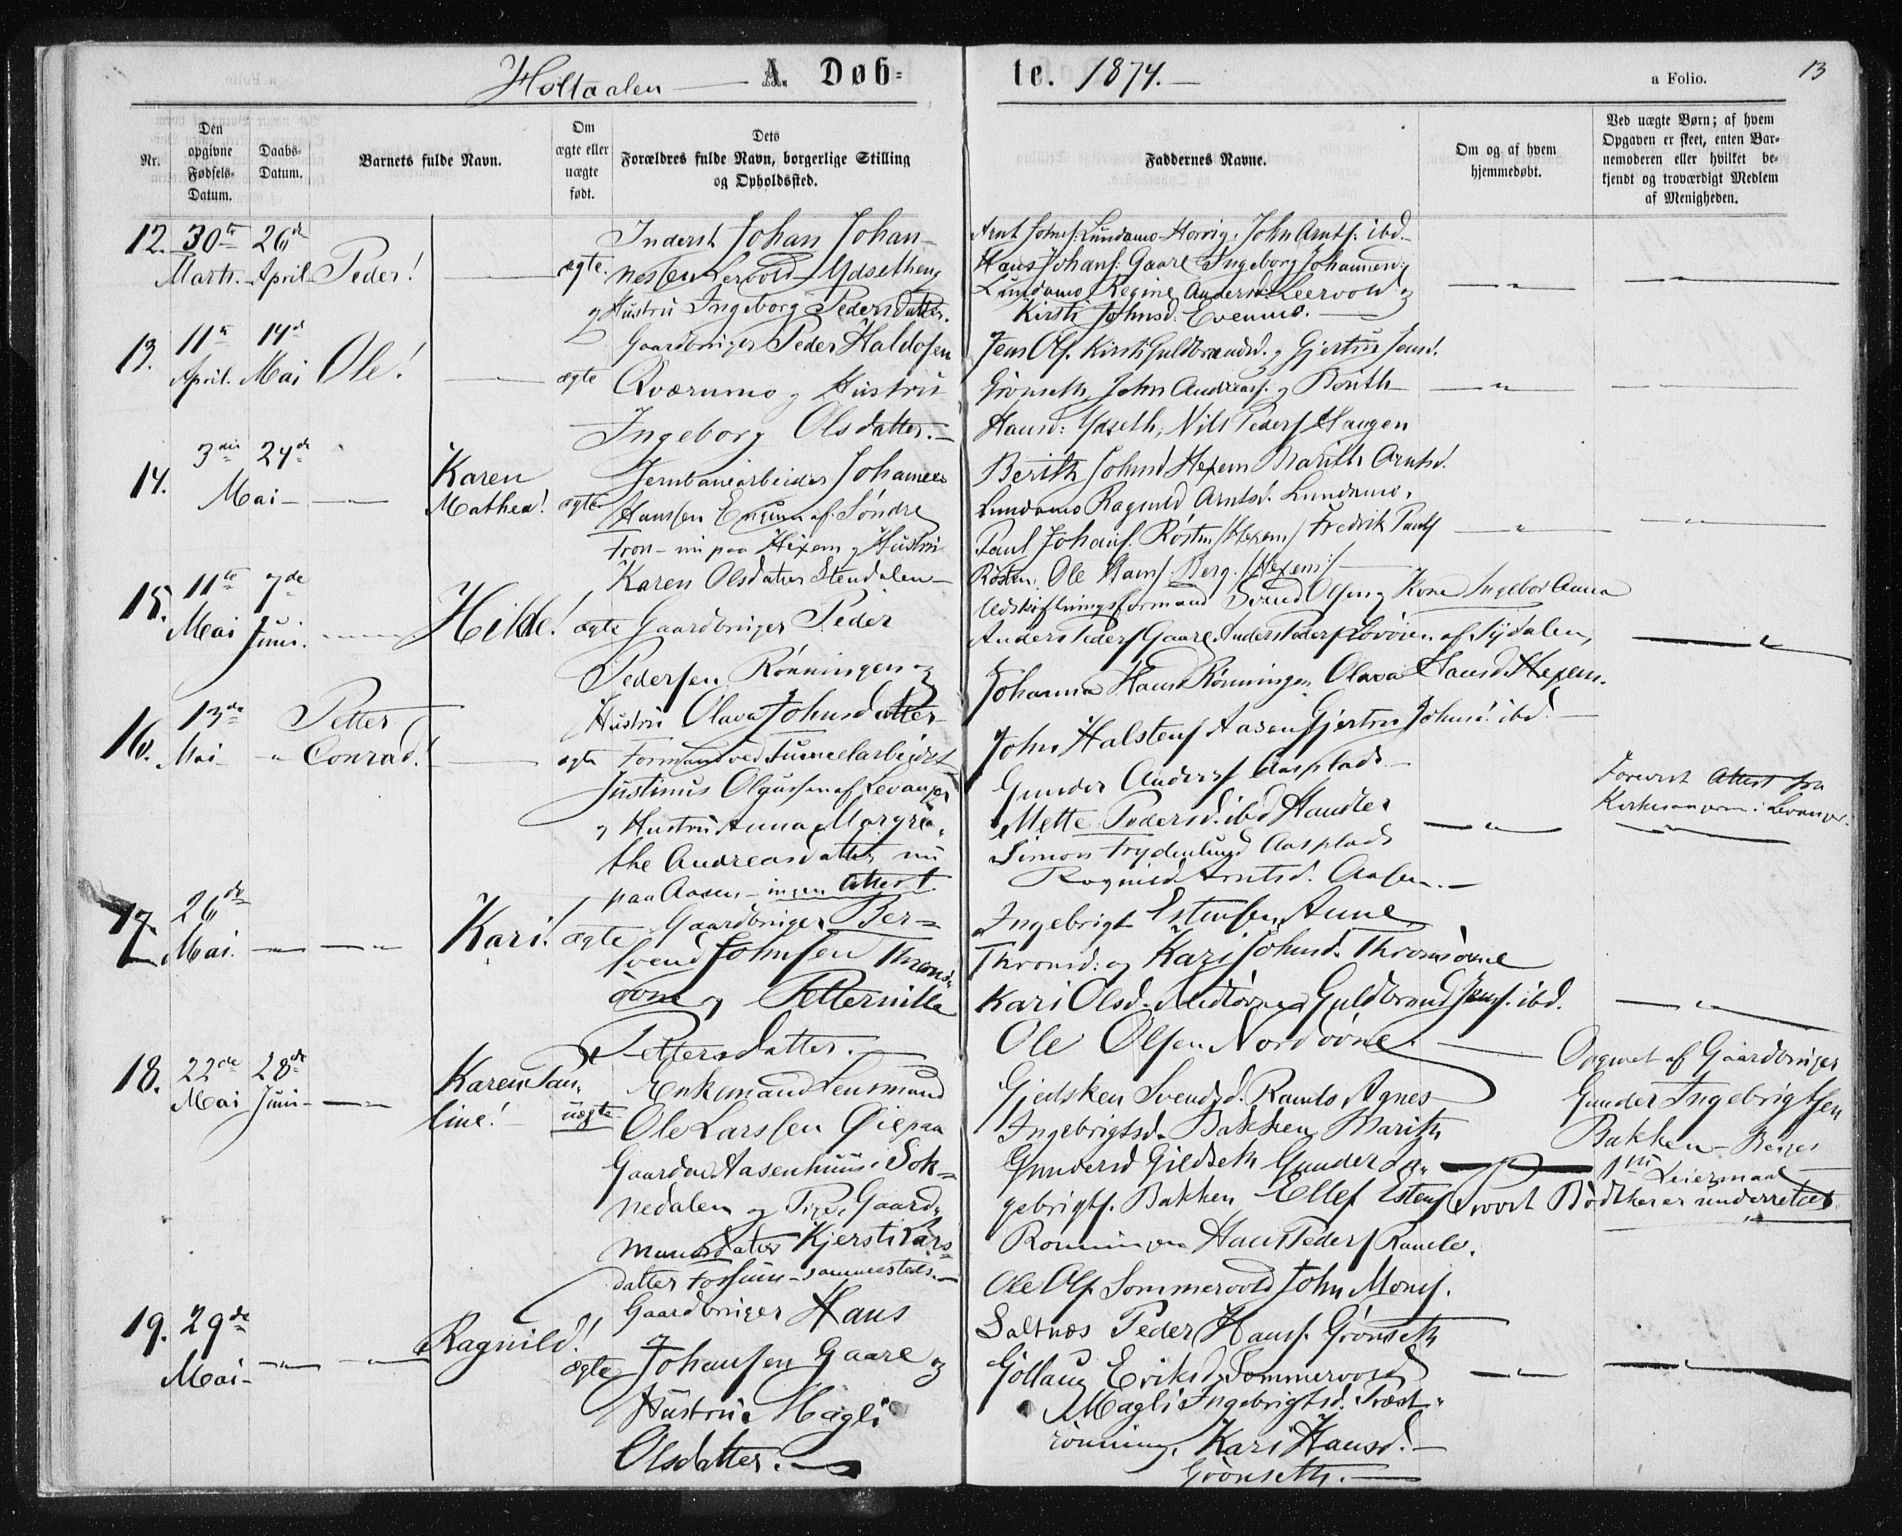 Holtaalen — A. Døb-
te. 1874. —
a Folio.
13
Nr.
Den opgivne Fødsels-Datum.
Daabs-Datum.
Barnets fulde Navn.
Om ægte eller uægte født.
Dets Forældres fulde Navn, borgerlige Stilling og Opholdssted.
Faddernes Navne.
Om og af hvem hjemmedøbt.
Ved uægte Børn; af hvem Opgaven er skeet, enten Barnemoderen eller hvilket bekjendt og troværdigt Medlem af Menigheden.
12. 30te Marts. 26de April Peder! ægte.
Inderst Johan Johan-
nessen Lervold Ydsetheng
og Hustru Ingeborg Pedersdatter.
Arnt Johnss: Lundamo Horrig, John Arnts: ibd.
Hans Johans: Gaare Ingeborg Johannesd.
Lundamo Regine Andersd. Leervold og
Kirsti Johnsd. Evenmo.
13. 11te April. 14d Mai Ole! ægte
Gaardbruger Peder Haldosen
Qværnmo og Hustru
Ingeborg Olsdatter. —
Jens Ols. Kirsti Guldbrandsd. og Gjertru Jensd.
Grønseth, John Andreass. og Berith
Hansd: Ydseth, Nils Peders Haugen
14. 3die Mai 24de Karen Mathea! ægte
Jernbanearbeider Johannes
Hanssen Engum af Søndre
Tron — nu paa Hexem og Hustru
Karen Olsdatter Stendalen
Berith Johnsd Hexem Marith Arntsd.
Lundamo Ragnild Arntsd. Lundamo,
Paul Johans. Røsten /Hexem/ Fredrik Pauls
Røsten. Ole Hans. Berg. /Hexem/ —
15. 11te Mai 7de Juni. Hilde! ægte
Gaardbruger Peder
Pedersen Rønningen og
Hustru Olava Johnsdatter
Udskiftningsformand Svend Olsen og Kone Ingebor Anna
Anders Peders Gaare. Anders Peders Løvøien af Tydalen,
Johanna Hansd Rønningen Olava Hansd. Hexem.
16. 13de Mai " Petter Conrad! ægte
Formand ved Tunnelarbeidet
Justinus Olaussen af Levanger
og Hustru Anna Margre-
the Andreasdatter nu
paa Aasen — ingen Attest.
John Halstens Aasen Gjertru Johnsd. ibd. —
Gunder Anders Aasplads —
Mette Pedersd. ibd Handler
Simon Frydenlund Aasplads
Ragnild Arntsd. Aasen. —
Forevist Attest fra
Kirkesangeren i Levanger.
17. 26de Mai. Kari! ægte
Gaardbruger Ber-
svend Johnsen Thrond-
øvne og Petternille
Pettersdatter. —
Ingebrigt Estensen, Anne
Thronsd: og Kari Johnsd. Thronsøvne
Kari Olsd. Midtøvne Guldbrand Jens. ibd.
Ole Olsen Nordøvne. —
18. 22de Mai 28de Juni Karen Pau-
line! uægte
Enkemand Lensmand
Ole Larssen Øie paa
Gaarden Aasenhuus i Sok-
nedalen og Pige, Gaard-
mandsdatter Kjersti Lars-
datter Fossum — sammesteds. —
Gjedsken Svendsd. Ramlo Agnes
Ingebrigtsd. Bakken Marith
Gundersd Gildseth Gunder In-
gebrigts. Bakken Ellef Estens
Rønningen Hans Peders Ramlo.
Ole Ols Sommervold John Mons.
Opgivet af Gaardbruger
Gunder Ingebrigtsen
Bakken — Begges
1ste Leiermaal
Provst Bødtker er underrettet
19. 29de Mai Ragnild! ægte
Gaardbruger Hans
Johansen Gaare og
Hustru Magli
Olsdatter. —
Saltnæs Peder Hans. Grønseth
Gollaug Eriksd. Sommervold
Magli Ingebrigtsd. Svart-
rønning, Kari Hansd. —
Grønseth. —